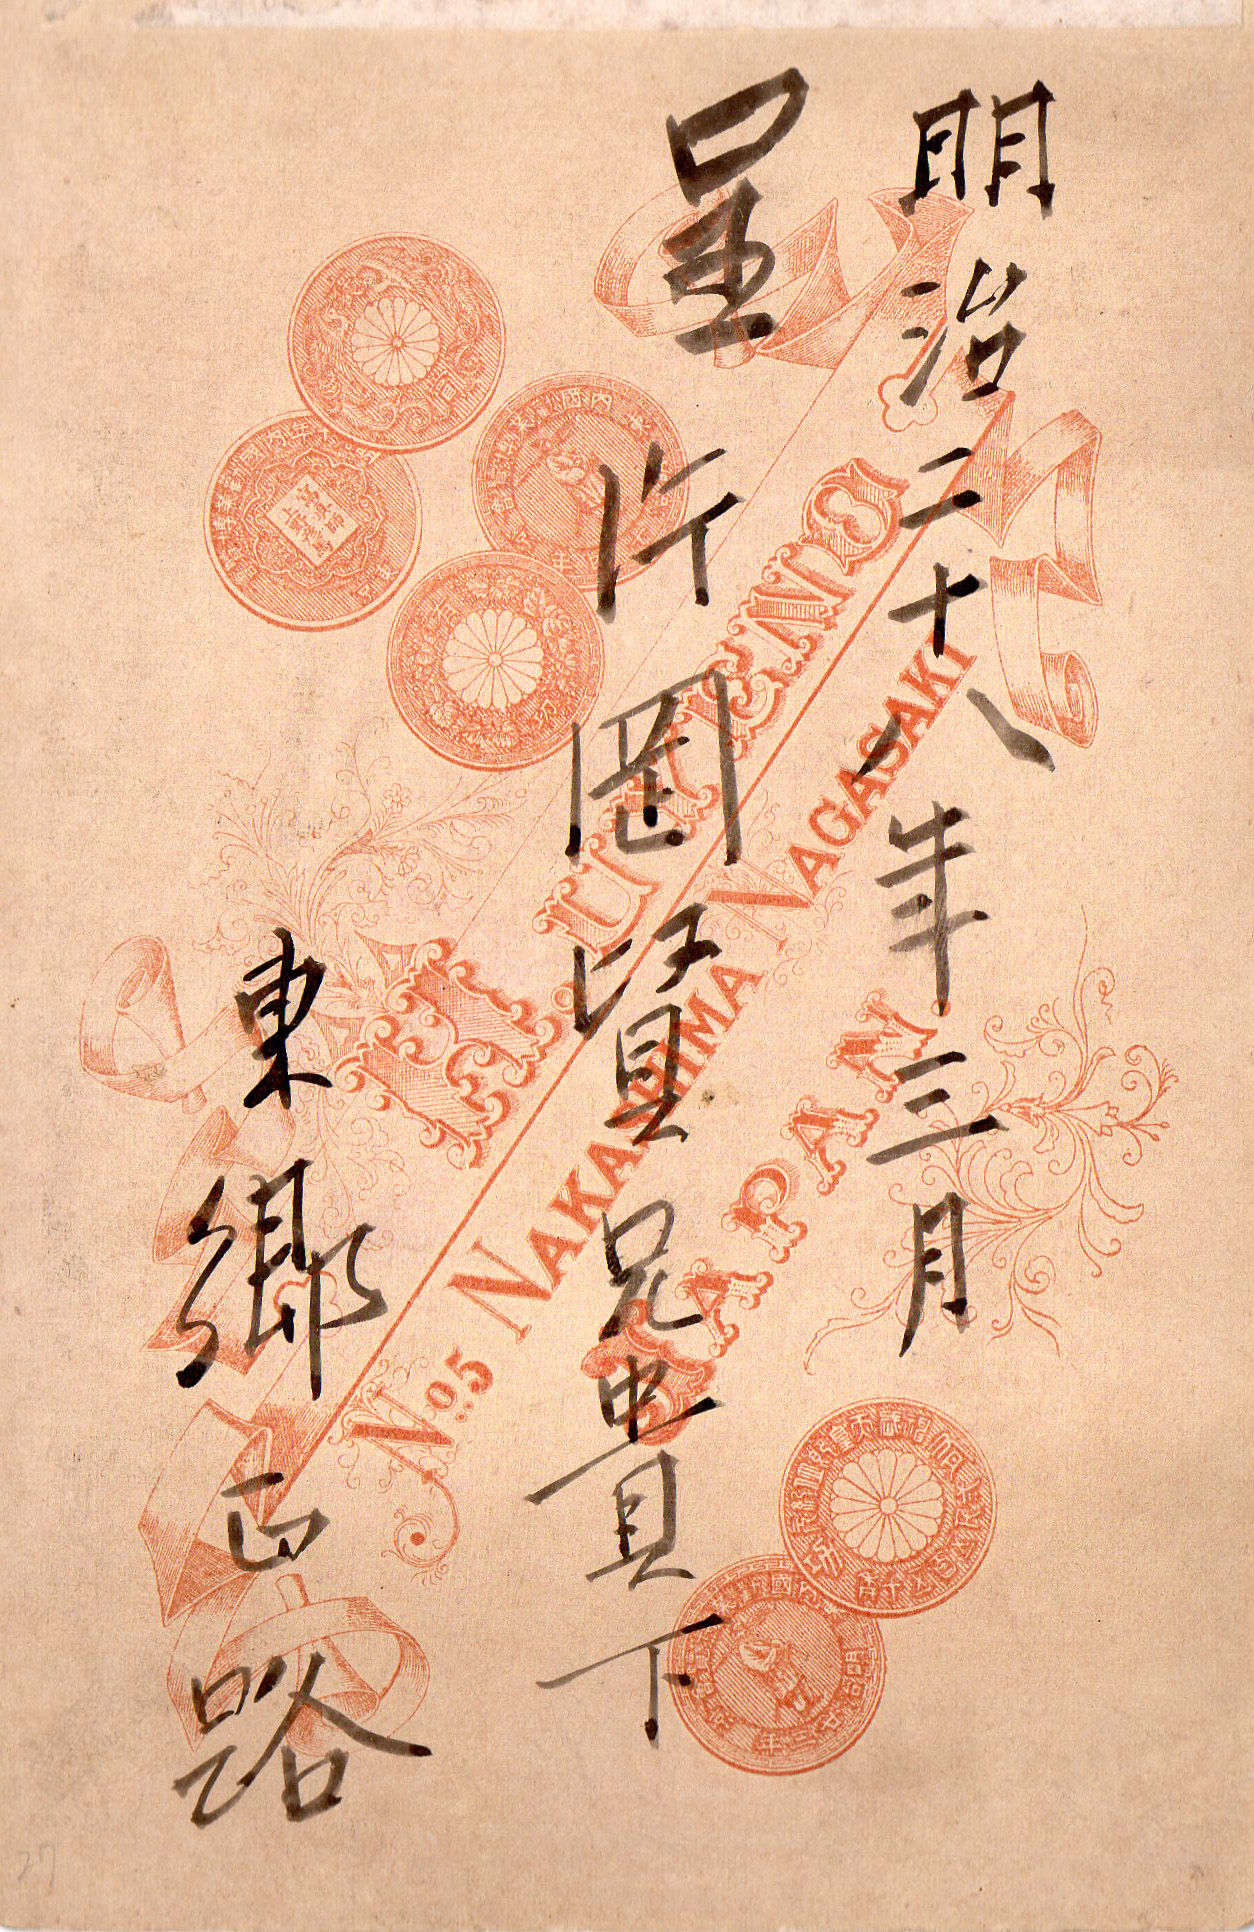 明治二十八年三月
呈 片岡賢兄貴下
東郷正路
H. UYENO
No. 5 NAKASHIMA NAGASAKI
JAPAN